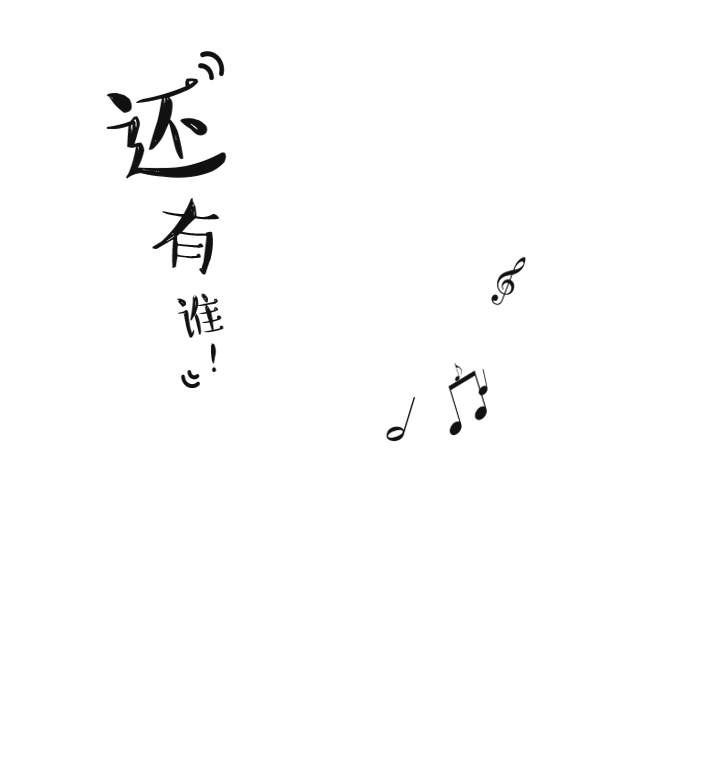 还有谁!